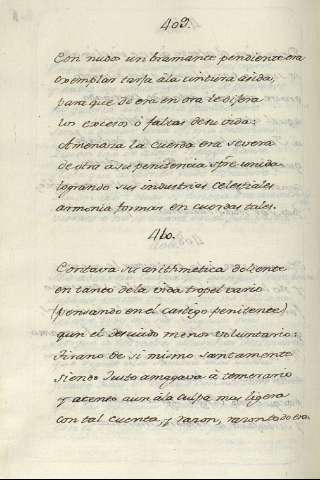 409.
Con nudos un bramante pendiente era
exemplar tarja à la cintura asida,
para que de ora en ora le dijera
los excesos ò faltas de su vida:
Amenaza la cuerda era severa
de otra à su penitencia spre unida
logrando sus industrias celestiales
armonia formar en cuerdas tales.
410.
Contava su arithmetica doliente
en tanto de la vida tropel vario
(pensando en el castigo penitente)
aun el descuido menos voluntario:
Tirano de si mismo santamente
siendo Justo amagava à temerario
y atento aun à la culpa mas ligera
con tal cuenta, y razon, razon todo era.